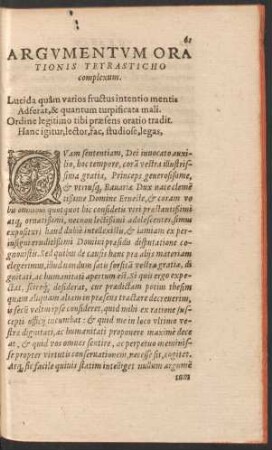 61
ARGVMENTVM ORA
TIONIS TETRASTICHO
complexum.
Lucida quàm varios fructus intentio mentis
Adferat, & quantum turpificata mali.
Ordine legitimo tibi præsens oratio tradit.
Hanc igitur, lector, fac, studiose, legas,
QVam sententiam, Dei innocato auxi-
lio, hoc tempore, corã vestra illustris-
sima gratia, Princeps generosissime,
& vtriusq; Bauariæ Dux nate clemē
tissime Domine Erneste, & coram vo
bis omnibus quotquot hic consedetis viri præstantissimi
atq; ornatissimi, necnon lectissimi adolescentes sim
expositurus haud dubiè intellexistis, & iamiam ex per-
insigni eruditissimi Domini præsidis disputatione con-
gnouistis. Sed quibus de causis hanc pro alijs materiam
elegerimus, id
gnitati, ac humanitati apertum est. Si quis ergo expe-
ctat, scireq; desiderat, cur prædictam potiùs thesim
quàm aliquam aliam in præsens tractare decreuerim,
is secũ velim ipse consideret, quid mihi ex ratione sus-
cepti officij incumbat: & quid me in loco vltimo ve-
stræ dignitati, ac humanitati proponere maximè dece
at, & quid vos omnes sentire, ac perpetuò meminisse
se propter virtutis conseruationem, necesse sit, cogitet.
Atq; sic facile quiuis statim intelliget nullum argumē
tum